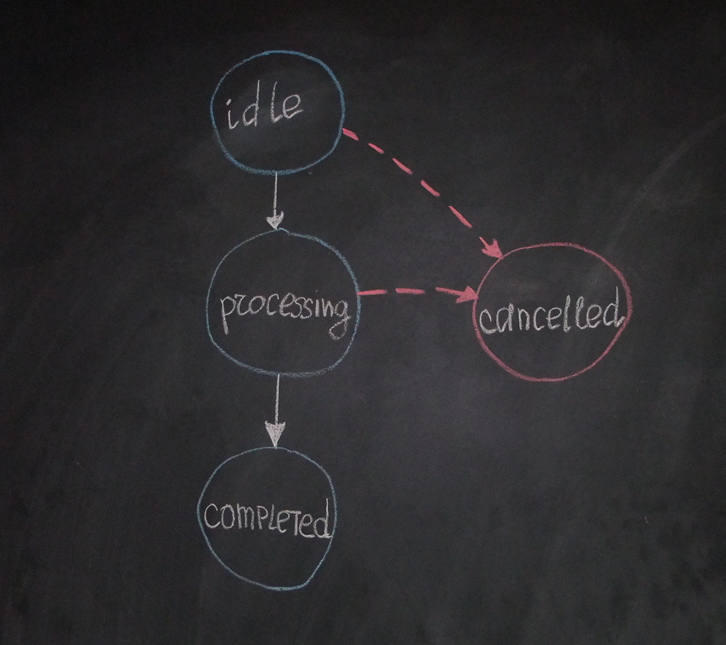 idle
processing
cancelled
completed